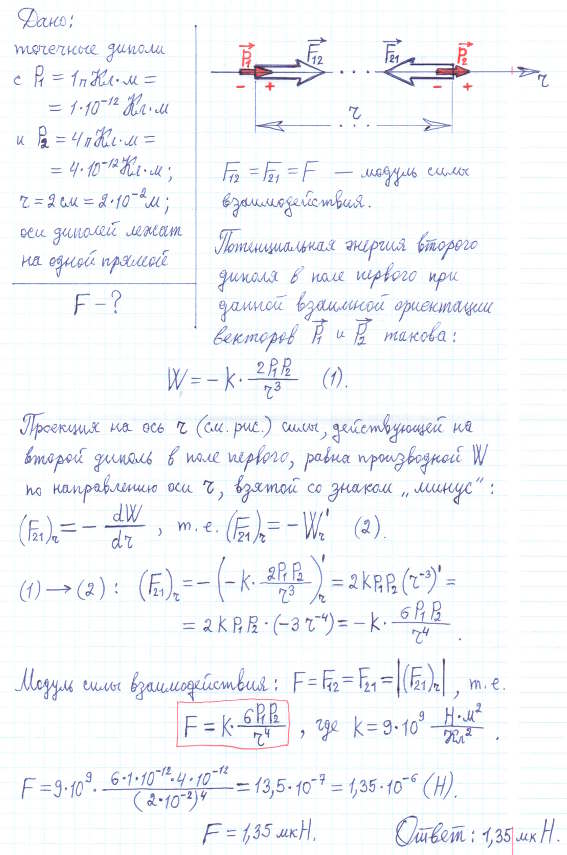 Дано:
точечные диполи
с P₁ = 1 пКл·м =
= 1·10⁻¹² Кл·м
и P₂ = 4 пКл·м =
= 4·10⁻¹² Кл·м;
r = 2 см = 2·10⁻² м;
оси диполей лежат
на одной прямой
F – ?
P₁ F₁₂ F₂₁ P₂
– + · · · – + r
r
F₁₂ = F₂₁ = F — модуль силы
взаимодействия.
Потенциальная энергия второго
диполя в поле первого при
данной взаимной ориентации
векторов P₁ и P₂ такова:
W = – k · 2P₁P₂/r³ (1).
Проекция на ось r (см. рис.) силы, действующей на
второй диполь в поле первого, равна производной W
по направлению оси r, взятой со знаком „минус“:
(F₂₁)r = – dW/dr , т.е. (F₂₁)r = – W'r (2).
(1) → (2) : (F₂₁)r = – (– k · 2P₁P₂/r³)'r = 2kP₁P₂ (r⁻³)' =
= 2kP₁P₂ · (–3r⁻⁴) = – k · 6P₁P₂/r⁴ .
Модуль силы взаимодействия: F = F₁₂ = F₂₁ = |(F₂₁)r| , т.е.
F = k · 6P₁P₂/r⁴ , где k = 9·10⁹ Н·м²/Кл² .
F = 9·10⁹ · 6·1·10⁻¹²·4·10⁻¹²/(2·10⁻²)⁴ = 13,5·10⁻⁷ = 1,35·10⁻⁶ (Н).
F = 1,35 мкН. Ответ: 1,35 мкН.